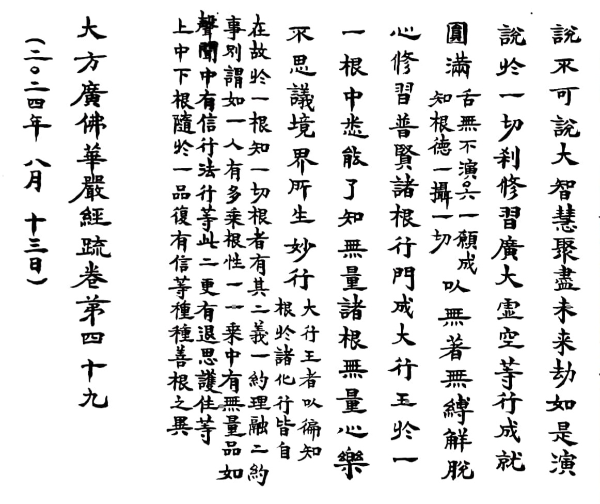 說不可說大智慧聚盡未来劫如是演
說於一切刹修習廣大虛空等行成就
圓滿
舌無不演 一願成
知根德一攝一切
以無著無縛解脫
心修習普賢諸根行門成大行王於一
一根中悉能了知無量諸根無量心樂
不思議境界所生妙行
大行王者以徧知
根於諸化行皆自
在故於一根知一切根者有其二義一約理融二約
事別謂如一人有多乘根性一一乘中有無量品如
聲聞中有信行法行等此二更有退思護住等
上中下根隨於一品復有信等種種善根之異
大方廣佛華嚴經疏卷第四十九
(二〇二四年 八月 十三日)